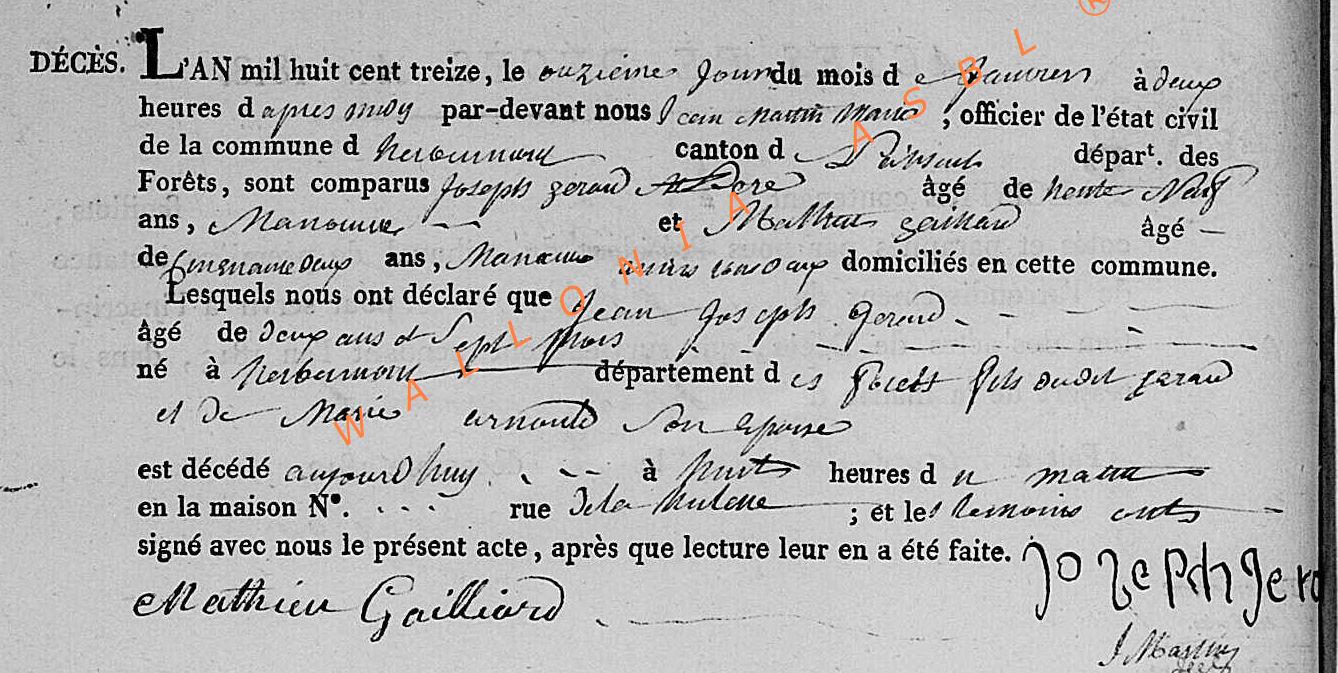 DÉCÈS. L'AN mil huit cent treize, le onzieme jour du mois d e Janvier à deux
heures d apres midy par-devant nous Jean Martin Marie, officier de l'état civil
de la commune d herbeumont canton d départ. des
Forêts, sont comparus joseph gerard âgé de trente Neuf
ans, Manouvre et Mathieu gaillard âgé
de Cinquante Deux ans, Manouvre tous deux domiciliés en cette commune.
Lesquels nous ont déclaré que Jean Joseph gerard
âgé de deux ans et Sept Mois
né à herbeumont département d es forets fils dudit gerard
et De Marie arnould Son epouse
est décédé aujourDhuy à huit heures d u matin
en la maison N°. rue De la ; et les temoins onts
signé avec nous le présent acte, après que lecture leur en a été faite. jozeph gera
Mathieu Gailliard
J Martin
WALLONIA ASBL ®